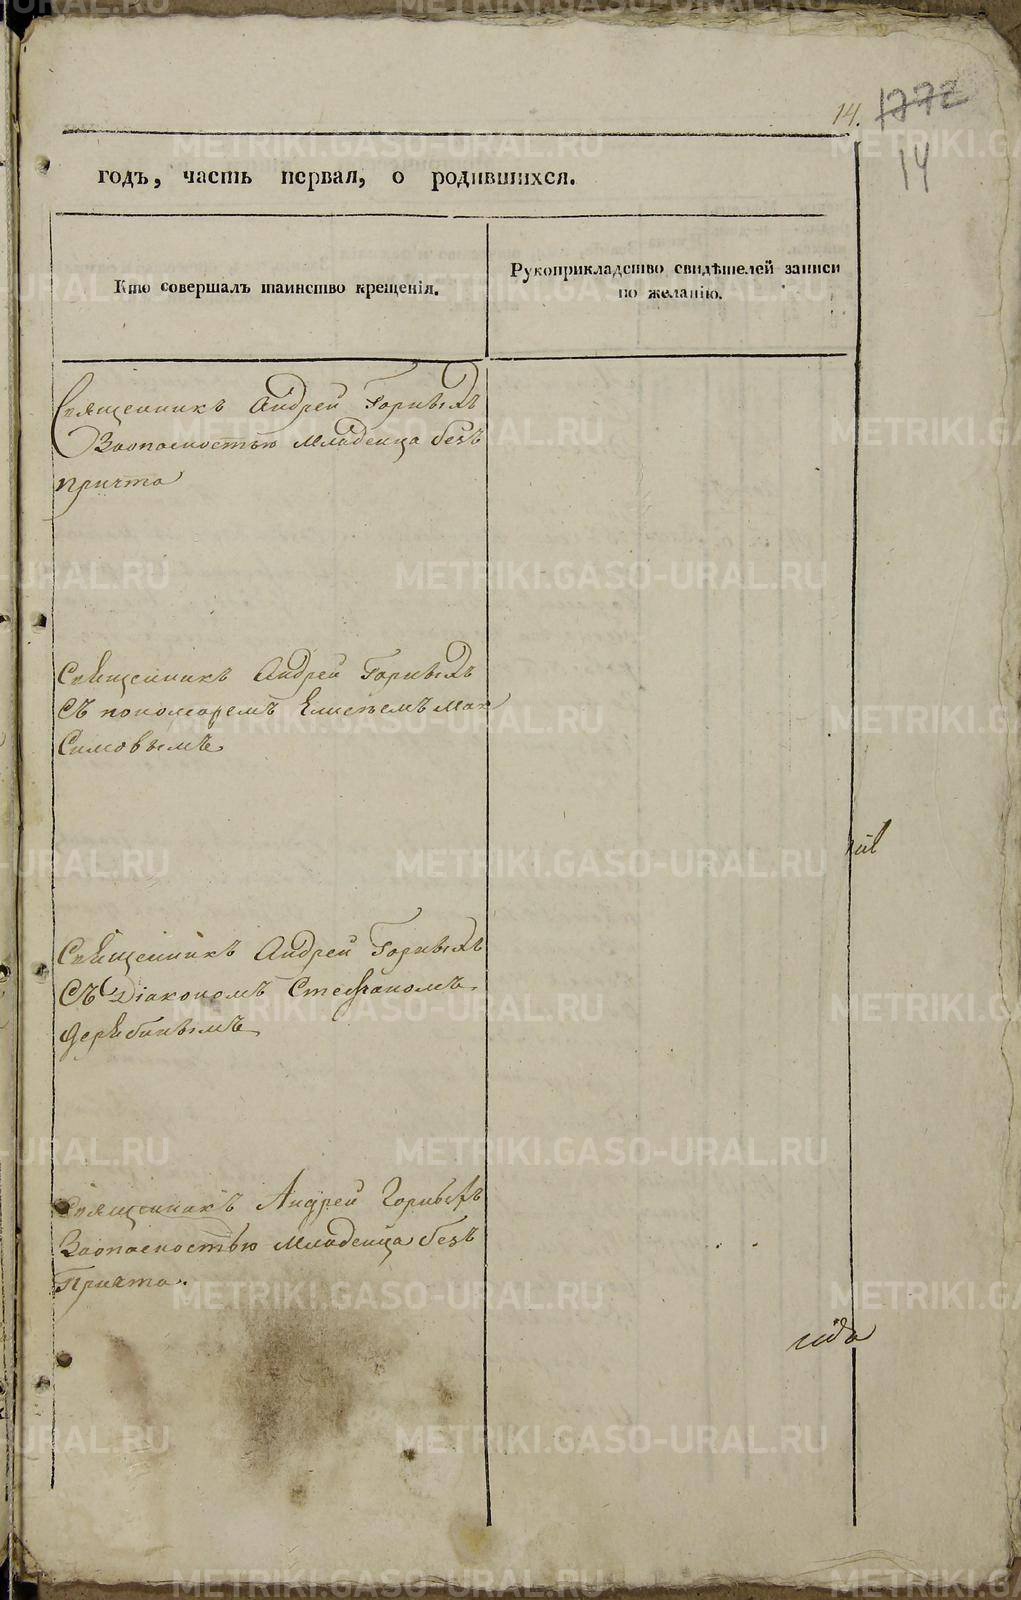 14. 1772
14
годъ, часть первая, о родившихся.
Кто совершалъ таинство крещенія.
Рукоприкладство свидѣтелей записи
по желанію.
Священникъ Андрей Горныхъ
Заопасностью младенца безъ
причта
Свѣщенникъ Андрей Горныхъ
Съ пономаремъ Елисѣемъ Мак
симовымъ
Свѣщенникъ Андрей Горныхъ
Съ Діакономъ Стефаномъ
Дерѣбинымъ
Священникъ Андрей Горныхъ
Заопасностью младенца безъ
Причта.
METRIKI.GASO-URAL.RU